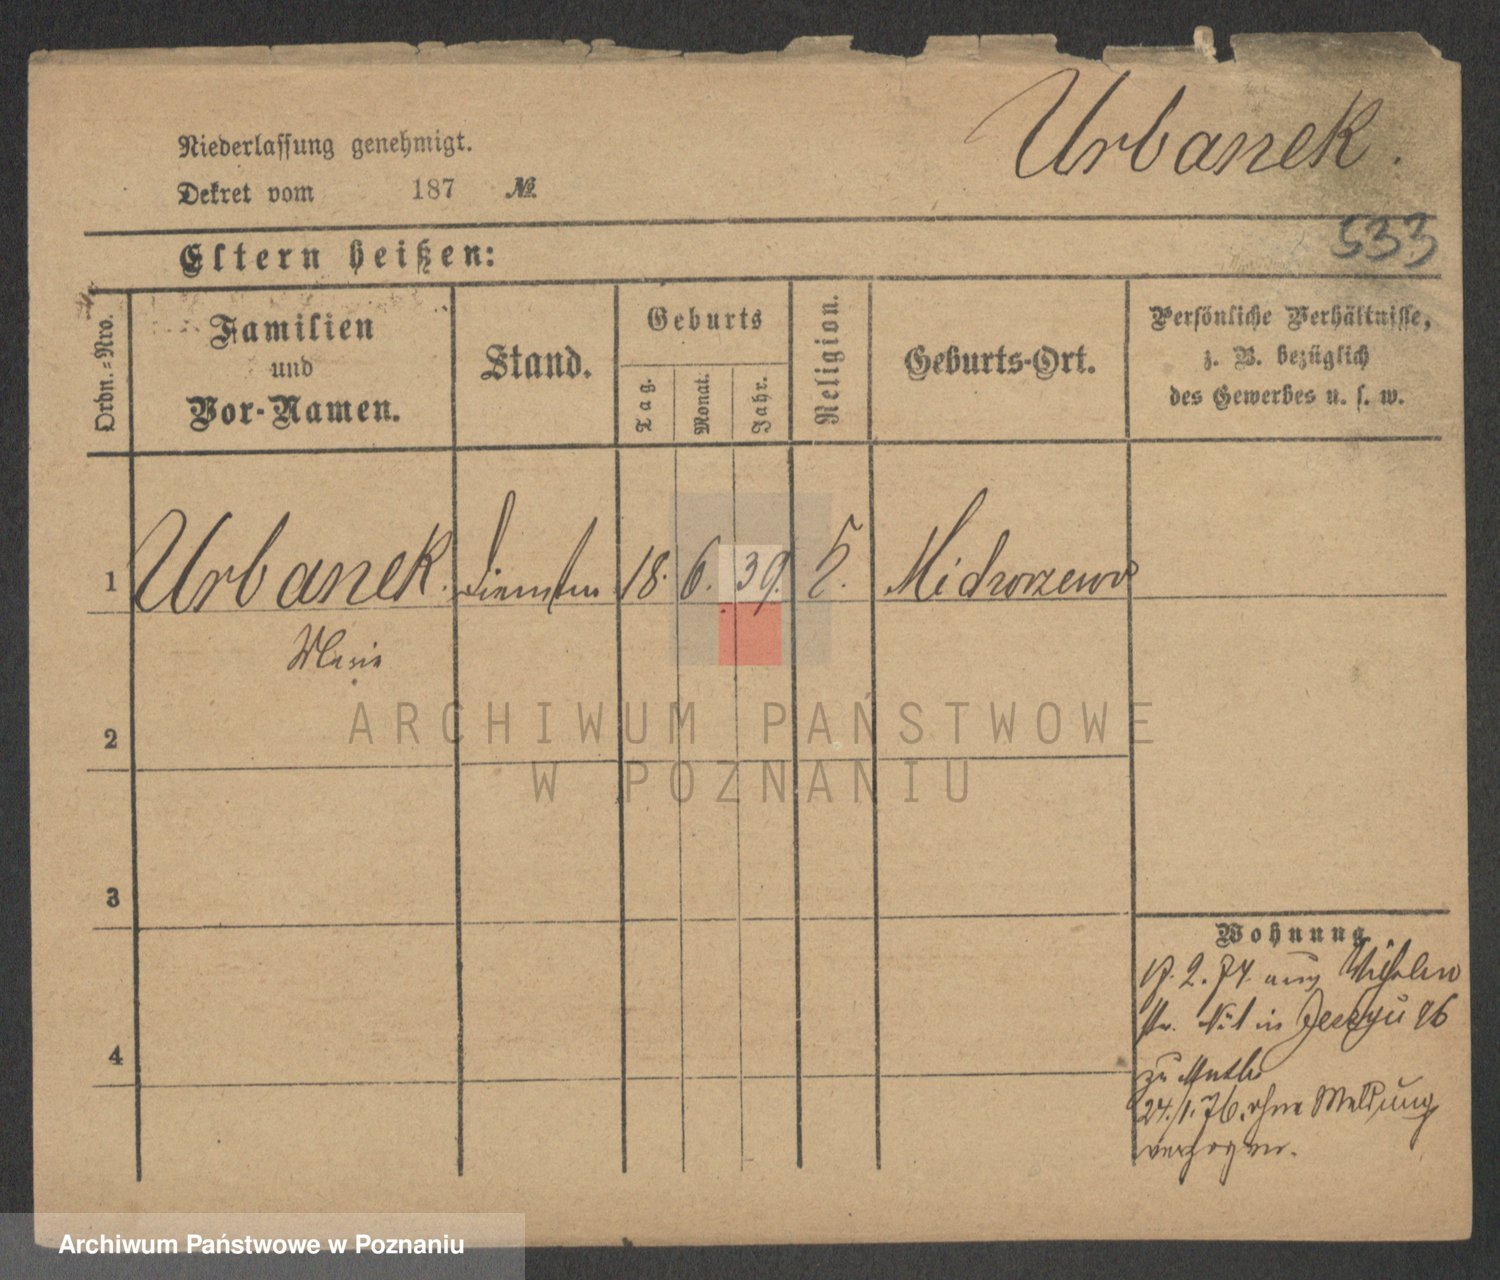 Urbanek.
Niederlassung genehmigt.
Dekret vom 187 №
533
Eltern heißen:
Ordn.=Nro.
Familien
und
Vor-Namen.
Stand.
Geburts
Tag.
Monat.
Jahr.
Religion.
Geburts-Ort.
Persönliche Verhältnisse,
z. B. bezüglich
des Gewerbes u. s. w.
1 Urbanek. 18. 6. 39.
Marie
2
3
4
Wohnung
2. 74
in
zu
24./1. 76. ohne Meldung
verzogen.
ARCHIWUM PAŃSTWOWE
W POZNANIU
Archiwum Państwowe w Poznaniu